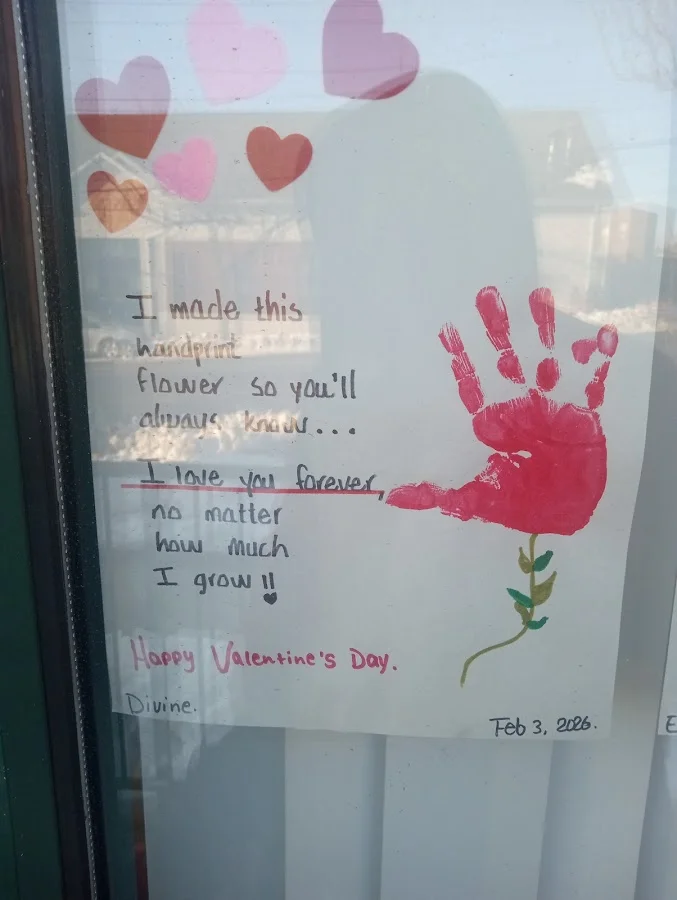 I made this
handprint
flower so you'll
always know...
I love you forever,
no matter
how much
I grow!!
Happy Valentine's Day.
Divine.
Feb 3, 2026.
E